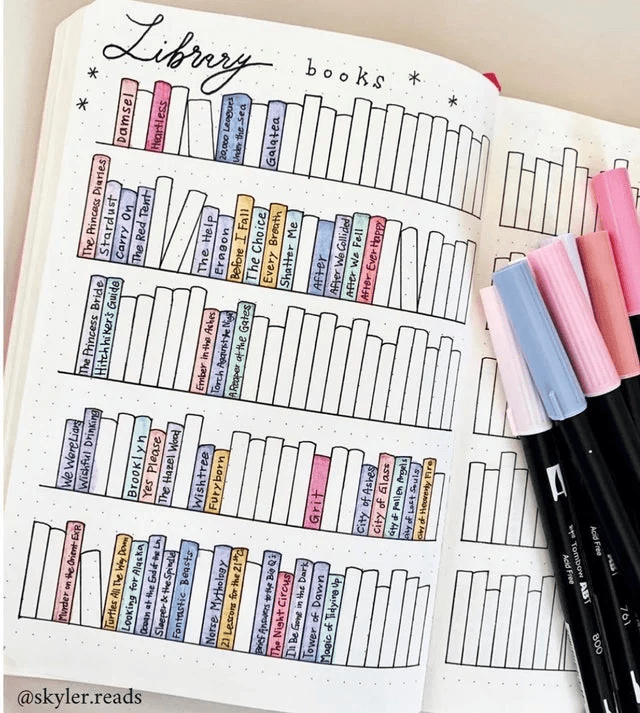 Library books
Damsel
Heartless
20,000 Leagues
Under the Sea
Galatea
The Princess Diaries
Stardust
Carry On
The Red Tent
The Help
Eragon
Before I Fall
The Choice
Every Breath
Shatter Me
After
After We Collided
After We Fell
After Ever Happy
The Princess Bride
Hitchhiker's Guide
Ember in the Ashes
Torch Against the Night
A Reaper at the Gates
We Were Liars
Wishful Drinking
Brooklyn
Yes Please
The Hazel Wood
Wishtree
Furyborn
Grit
City of Ashes
City of Glass
City of Fallen Angels
City of Lost Souls
City of Heavenly Fire
Murder on the Orient Exp
Turtles All the Way Down
Looking for Alaska
Ocean at the End of the Ln
Sleeper & the Spindle
Fantastic Beasts
Norse Mythology
21 Lessons for the 21st C
Brief Answers to the Big Q's
The Night Circus
I'll Be Gone in the Dark
Tower of Dawn
Magic of Tidying Up
Tombow ABT
Acid Free
Acid Free
800
761
@skyler.reads